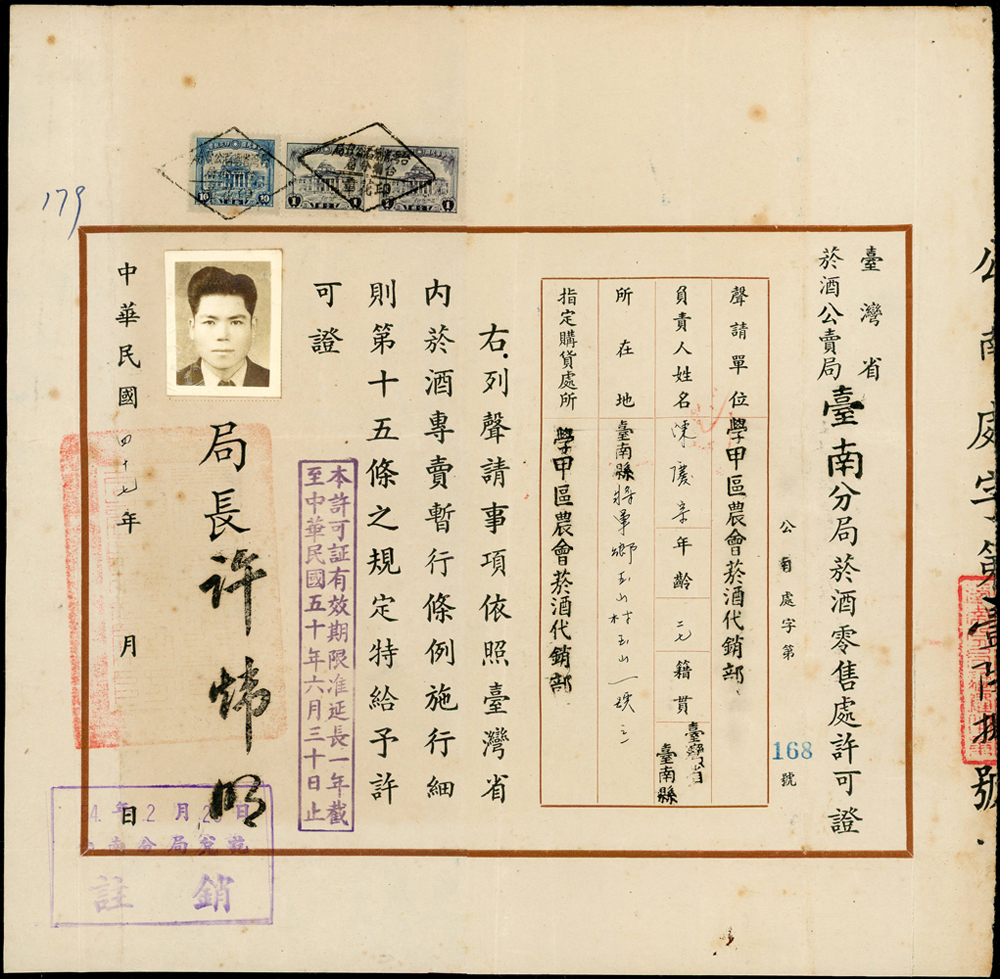 公南處字第壹陸捌號
臺灣省
菸酒公賣局臺南分局菸酒零售處許可證
公南處字第168號
聲請單位學甲區農會菸酒代銷部
負責人姓名陳慶章年齡二七籍貫臺灣省臺南縣
所在地臺南縣將軍鄉玉山村玉山一號之一
指定購貨處所學甲區農會菸酒代銷部
右列聲請事項依照臺灣省
內菸酒專賣暫行條例施行細
則第十五條之規定特給予許
可證
本許可証有效期限准延長一年截
至中華民國五十年六月三十日止
局長許
中華民國四十七年 月 日
179
10 10
1 1
1
印花章
年2月2 日
南分局
註銷